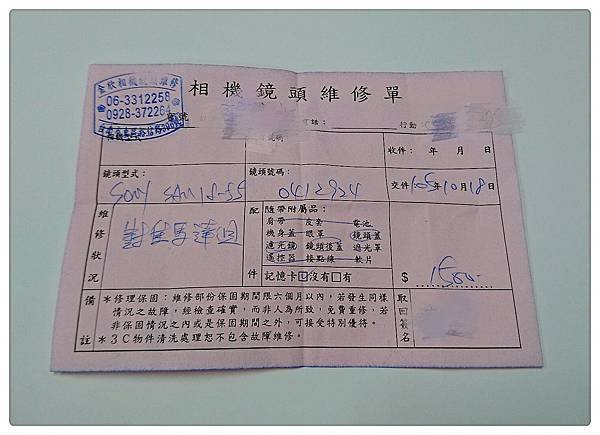 相機鏡頭維修單
全欣相機鏡頭維修
06-3312258
0928-372264
電話：
行動
收件： 年 月 日
鏡頭型式：
SONY SAM18-55
鏡頭號碼：
0412924
交件 105年10月18日
維修狀況
配件
隨帶附屬品：
肩帶 皮套 電池
機身蓋 眼罩 鏡頭蓋
濾光鏡 鏡頭後蓋 遮光罩
遙控器 接點線 軟片
記憶卡□沒有□有
$ 1500-
備註
*修理保固：維修部份保固期間限六個月以內，若發生同樣
情況之故障，經檢查確實，而非人為所致，免費重修，若
非保固情況之內或是保固期間之外，可接受特別優待。
*3C物件清洗處理恕不包含故障維修。
取回簽名